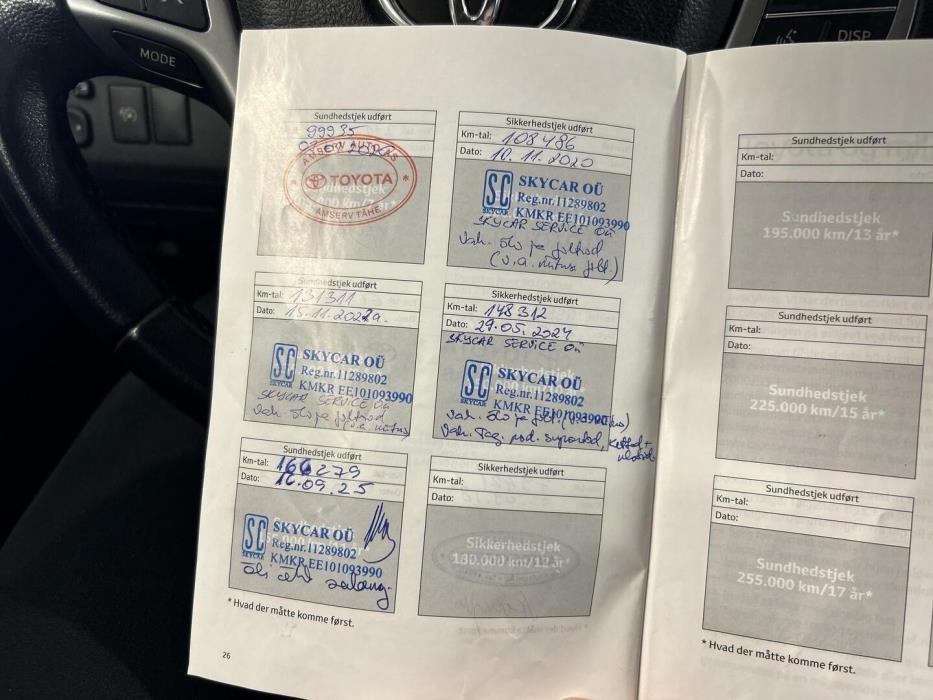 MODE
DISP
Sundhedstjek udført
99935
AMSERV AUTO AS
TOYOTA
AMSERV TÄHE
Sikkerhedstjek udført
Km-tal: 108486
Dato: 10.11.2020
SKYCAR OÜ
Reg.nr.11289802
SC
SKYCAR
KMKR EE101093990
SKYCAR SERVICE OÜ
Vah. õli ja filtrid
Sundhedstjek udført
Km-tal: 131311
Dato: 15.11.2022a.
SC
SKYCAR
SKYCAR OÜ
Reg.nr.11289802
KMKR EE101093990
SKYCAR SERVICE OÜ
Vah. õli ja filtrid
Sikkerhedstjek udført
Km-tal: 148312
Dato: 29.05.2024
SKYCAR SERVICE OÜ
SC
SKYCAR
SKYCAR OÜ
Reg.nr.11289802
KMKR EE101093990
Sundhedstjek udført
Km-tal: 166279
Dato: 16.09.25
SC
SKYCAR
SKYCAR OÜ
Reg.nr.11289802
KMKR EE101093990
Sikkerhedstjek udført
Km-tal:
Dato:
Sikkerhedstjek
180.000 km/12 år*
* Hvad der måtte komme først.
26
Sundhedstjek udført
Km-tal:
Dato:
Sundhedstjek
195.000 km/13 år*
Sundhedstjek udført
Km-tal:
Dato:
Sundhedstjek
225.000 km/15 år*
Sundhedstjek udført
Km-tal:
Dato:
Sundhedstjek
255.000 km/17 år*
* Hvad der måtte komme først.